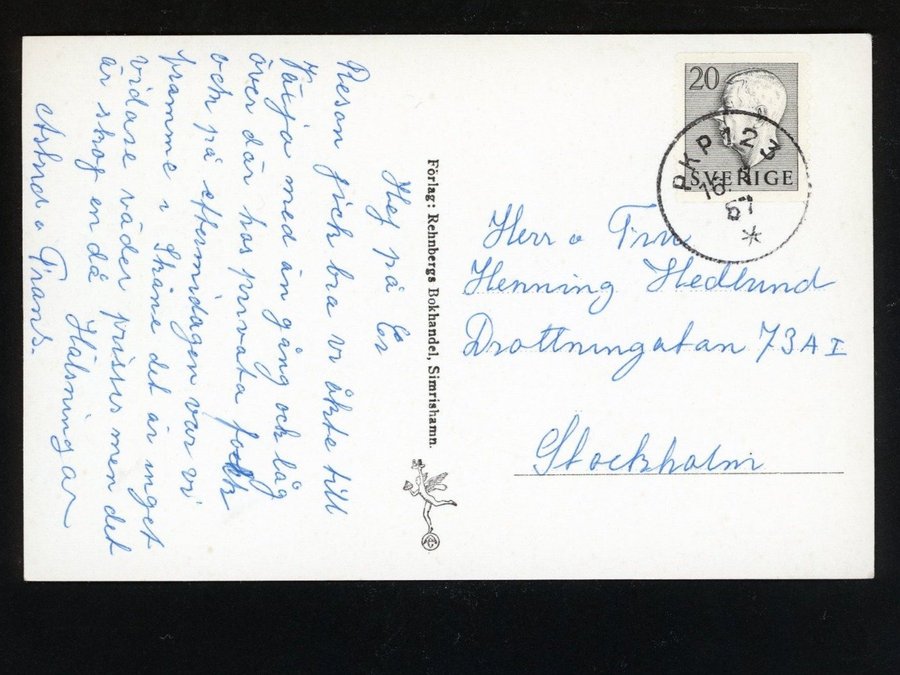 Hej på Er
Reson gick bra vi åkte till
Värja med än gång och låg
över där hos privata folk
och på eftermidagen var vi
framme i Skåne det är inget
vidare väder prissis men det
är skog en då Hälsningar
Astrid o Frans.
Förlag: Rehnbergs Bokhandel, Simrishamn.
20
SVERIGE
PKP 123
16.
57
Herr o Fru
Henning Hedlund
Drottningatan 73 A I
Stockholm